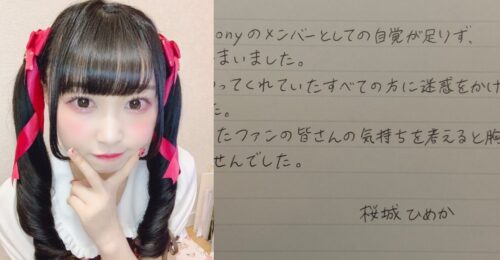 onyのメンバーとしての自覚が足りず、
まいました。
ってくれていたすべての方に迷惑をかけ
た。
たファンの皆さんの気持ちを考えると胸
せんでした。
桜城ひめか